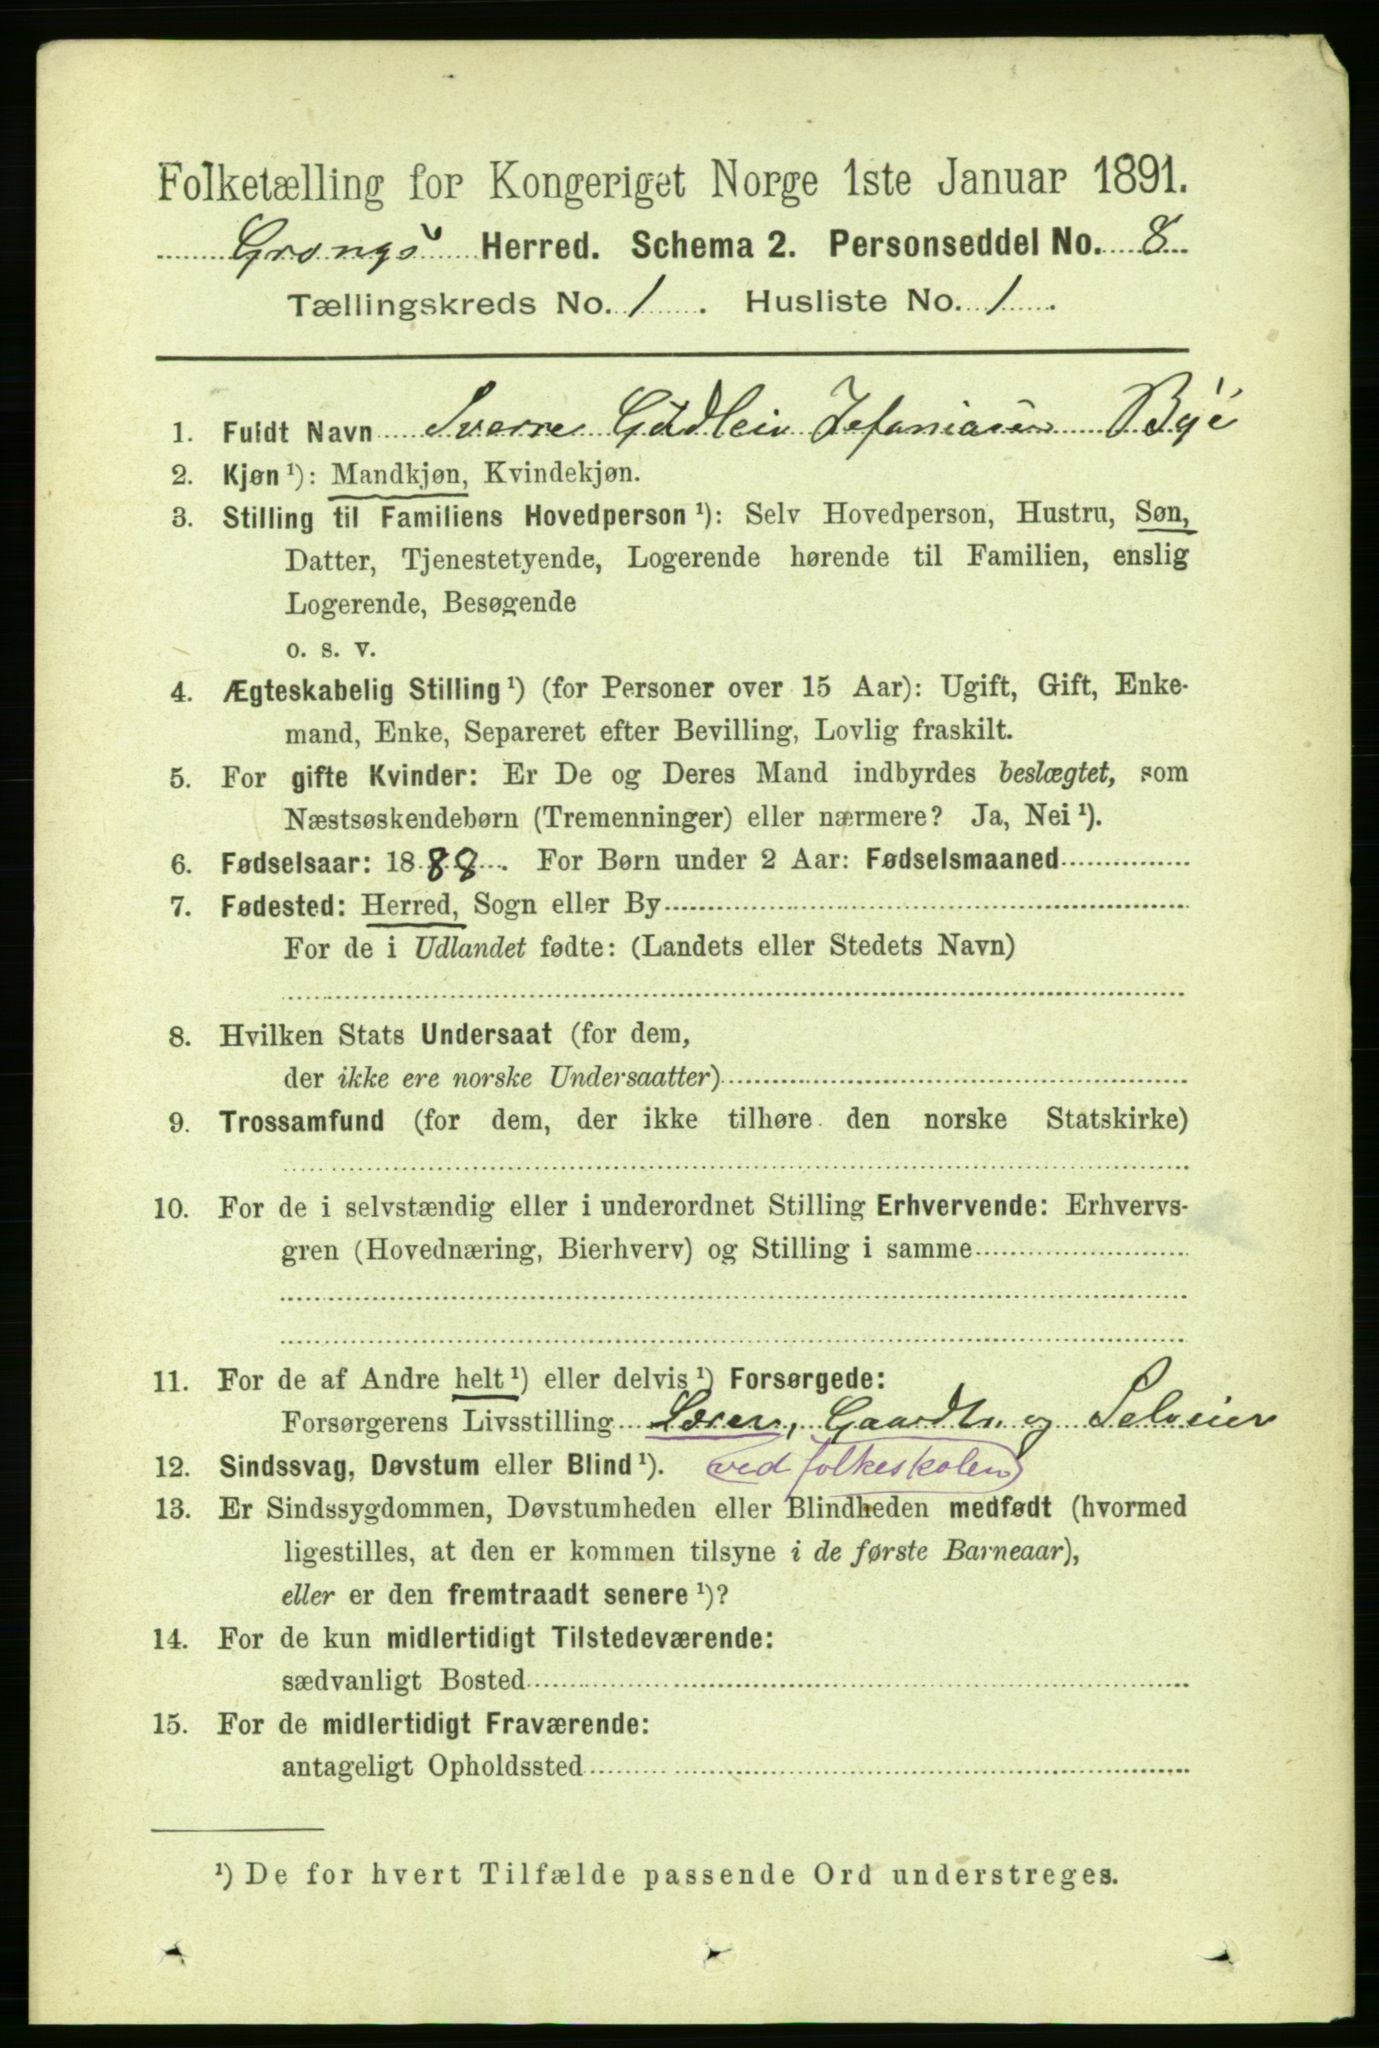 Folketælling for Kongeriget Norge 1ste Januar 1891.
Grongs Herred. Schema 2. Personseddel No. 8
Tællingskreds No. 1. Husliste No. 1.
1. Fuldt Navn Sverre Gudlein Zefaniasen Bye
2. Kjøn ¹): Mandkjøn, Kvindekjøn.
3. Stilling til Familiens Hovedperson ¹): Selv Hovedperson, Hustru, Søn,
Datter, Tjenestetyende, Logerende hørende til Familien, enslig
Logerende, Besøgende
o. s. v.
4. Ægteskabelig Stilling ¹) (for Personer over 15 Aar): Ugift, Gift, Enke-
mand, Enke, Separeret efter Bevilling, Lovlig fraskilt.
5. For gifte Kvinder: Er De og Deres Mand indbyrdes beslægtet, som
Næstsøskendebørn (Tremenninger) eller nærmere? Ja, Nei ¹).
6. Fødselsaar: 1888. For Børn under 2 Aar: Fødselsmaaned
7. Fødested: Herred, Sogn eller By
For de i Udlandet fødte: (Landets eller Stedets Navn)
8. Hvilken Stats Undersaat (for dem,
der ikke ere norske Undersaatter)
9. Trossamfund (for dem, der ikke tilhøre den norske Statskirke)
10. For de i selvstændig eller i underordnet Stilling Erhvervende: Erhvervs-
gren (Hovednæring, Bierhverv) og Stilling i samme
11. For de af Andre helt ¹) eller delvis ¹) Forsørgede:
Forsørgerens Livsstilling Lærer, Gaardb. og Selveier
12. Sindssvag, Døvstum eller Blind ¹). ved folkeskolen
13. Er Sindssygdommen, Døvstumheden eller Blindheden medfødt (hvormed
ligestilles, at den er kommen tilsyne i de første Barneaar),
eller er den fremtraadt senere ¹)?
14. For de kun midlertidigt Tilstedeværende:
sædvanligt Bosted
15. For de midlertidigt Fraværende:
antageligt Opholdssted
¹) De for hvert Tilfælde passende Ord understreges.